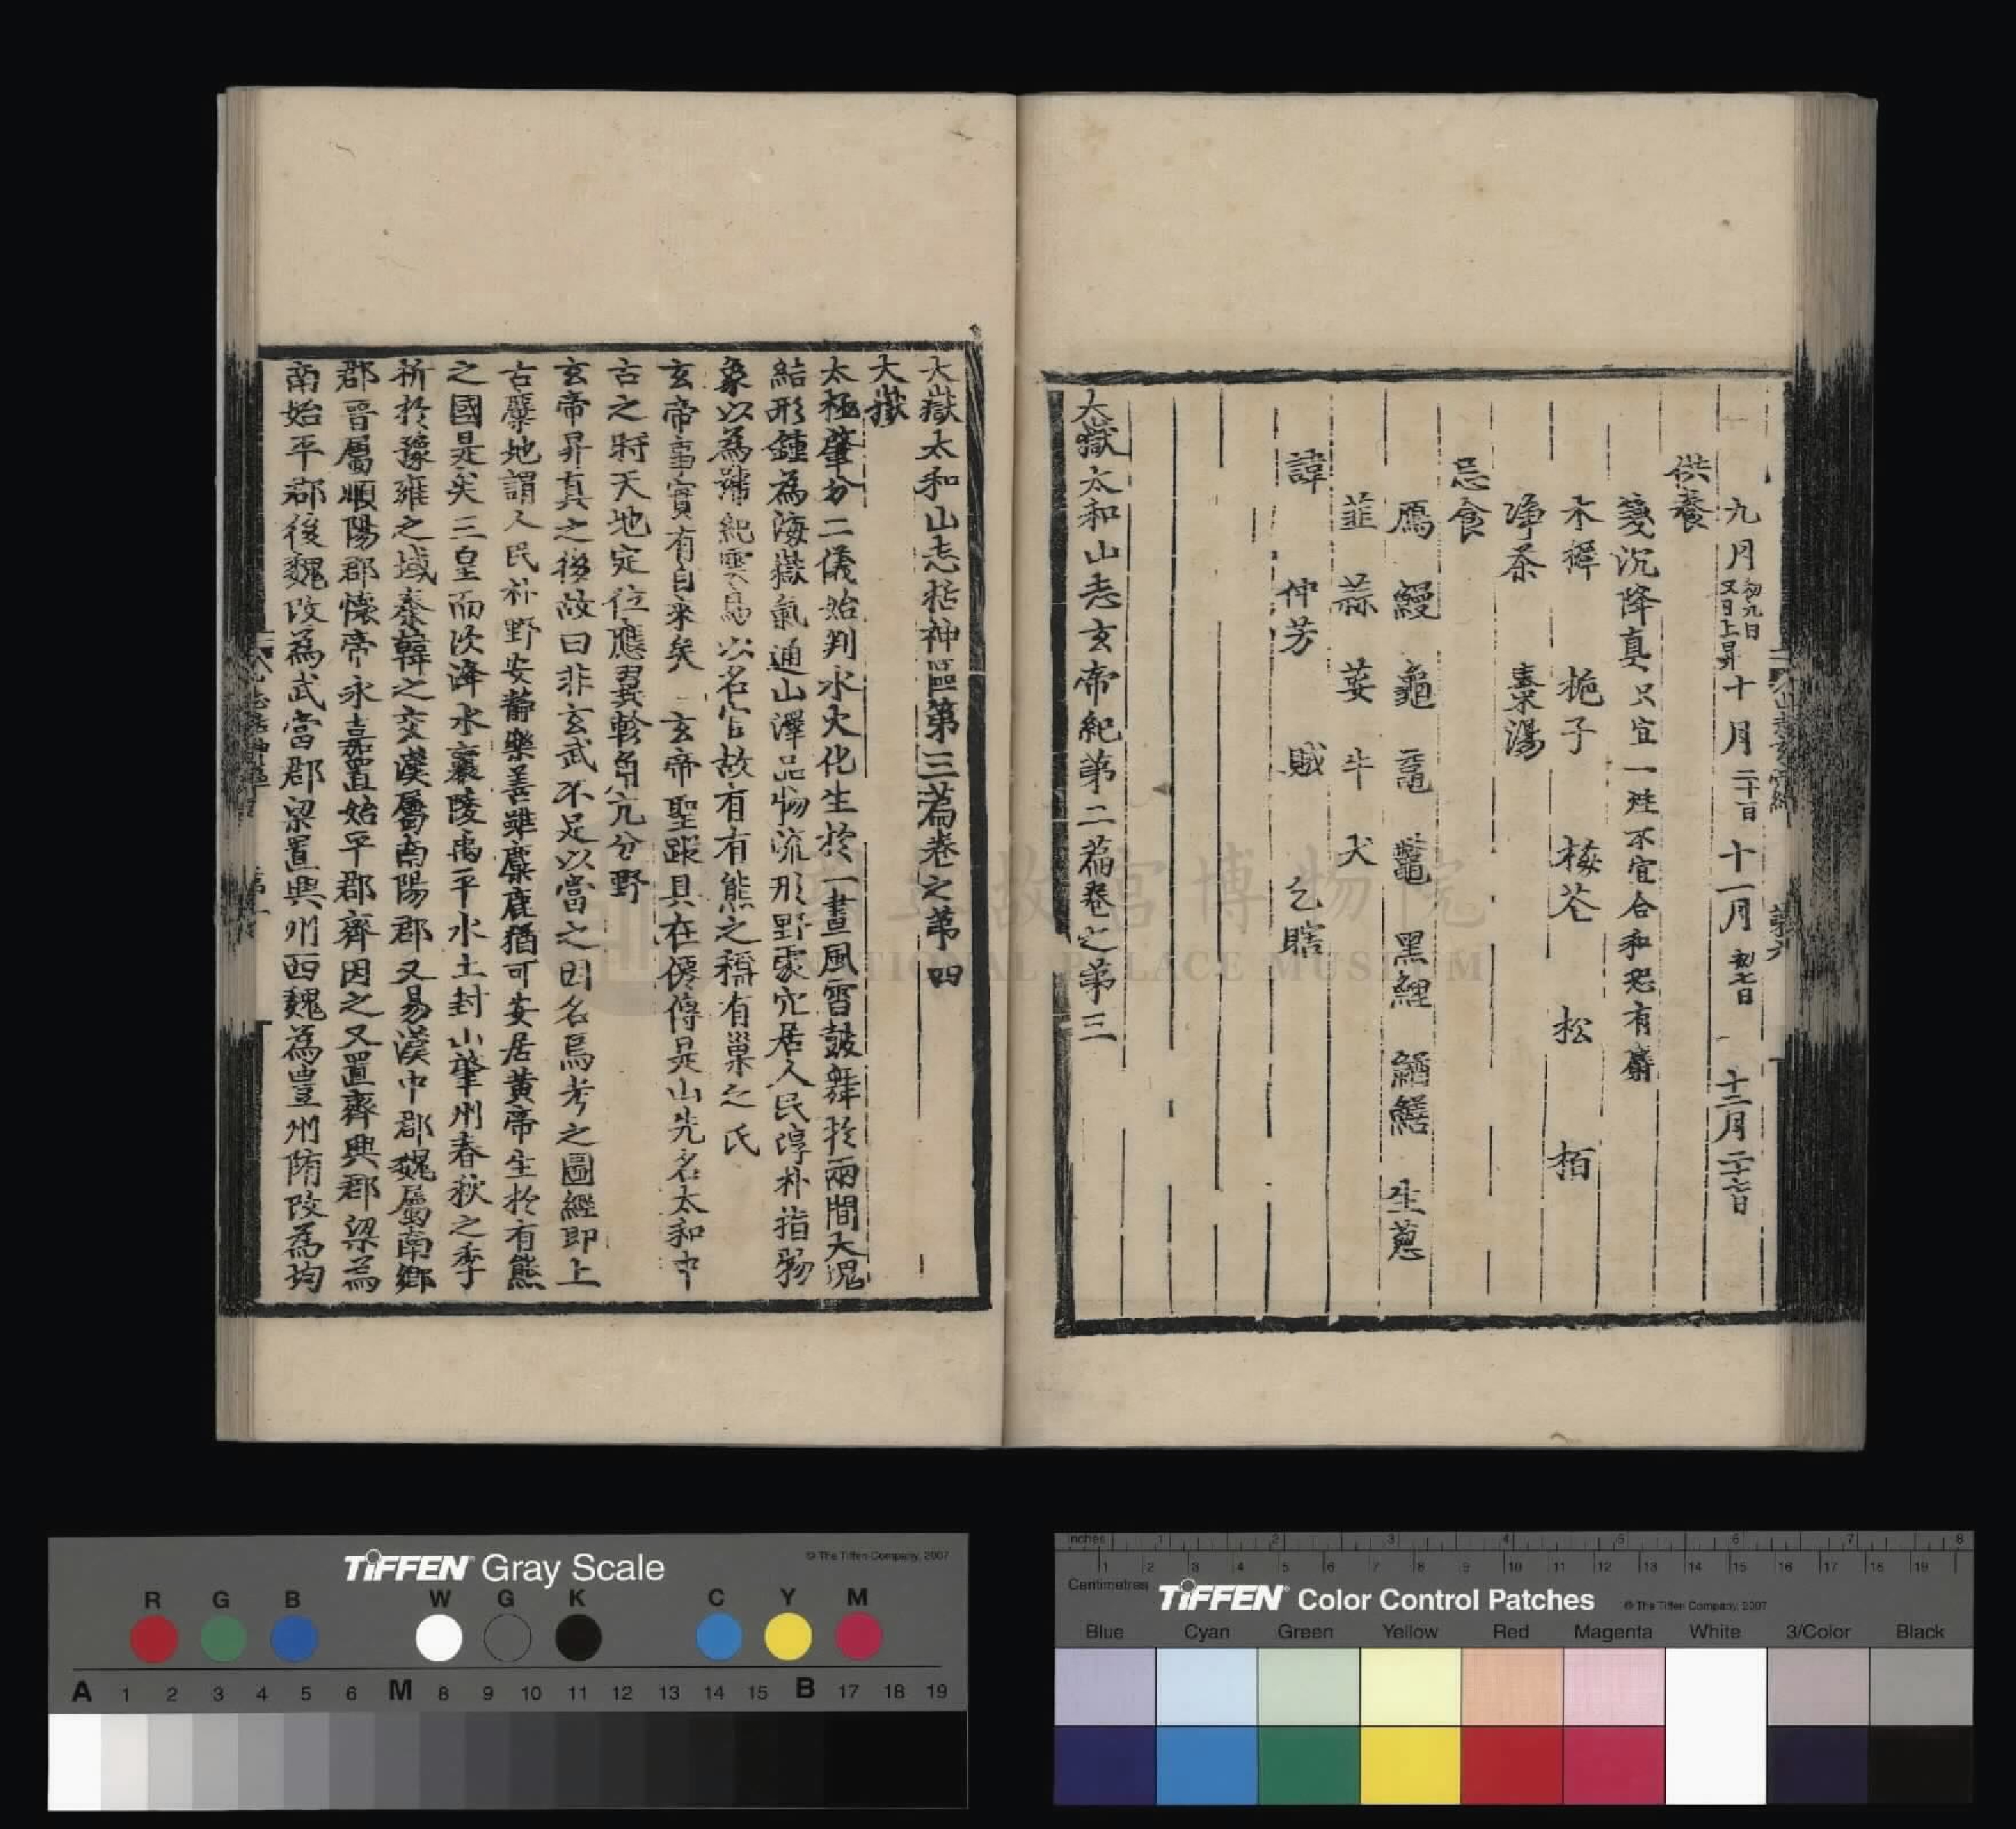 九月初九日又日上昇十月二十一日十一月初七日十二月二十七日
供養
箋沉降真只宜一炷不宜合和恐有麝
木樨 梔子 梅花 松 栢
淨茶 棗湯
忌食
鴈 鰻 龜 黿 鼈 黑鯉 鰌鱔 生蔥
韮 蒜 荽 牛 犬
諱
仲芳 賊 乞 瞎
大嶽太和山志玄帝紀第二篇卷之第三
大嶽太和山志括神區第三篇卷之第四
大嶽
太極肇分二儀始判水火化生於一畫風雷鼓舞於兩間大塊
結形鍾為海嶽氣通山澤品物流形野處穴居人民淳朴指物
象以為號紀雲鳥以名官故有有熊之稱有巢之氏
玄帝事實有自来矣 玄帝聖跡具在僊傳是山先名太和中
古之時天地定位應翼軫角亢分野
玄帝昇真之後故曰非玄武不足以當之因名焉考之圖經即上
古麋地謂人民朴野安靜樂善雖麋鹿猶可安居黃帝生於有熊
之國是矣三皇而次洚水襄陵禹平水土封山肇州春秋之季
折於豫雍之域秦韓之交漢屬南陽郡又易漢中郡魏屬南鄉
郡晋屬順陽郡懷帝永嘉置始平郡齊因之又置齊興郡梁為
南始平郡後魏改為武當郡梁置興州西魏為豊州隋改為均
TiFFEN Gray Scale
© The Tiffen Company, 2007
R G B W G K C Y M
A 1 2 3 4 5 6 M 8 9 10 11 12 13 14 15 B 17 18 19
Inches 1 2 3 4 5 6 7 8
1 2 3 4 5 6 7 8 9 10 11 12 13 14 15 16 17 18 19
Centimetres
TiFFEN Color Control Patches
© The Tiffen Company, 2007
Blue Cyan Green Yellow Red Magenta White 3/Color Black
國立故宮博物院
NATIONAL PALACE MUSEUM